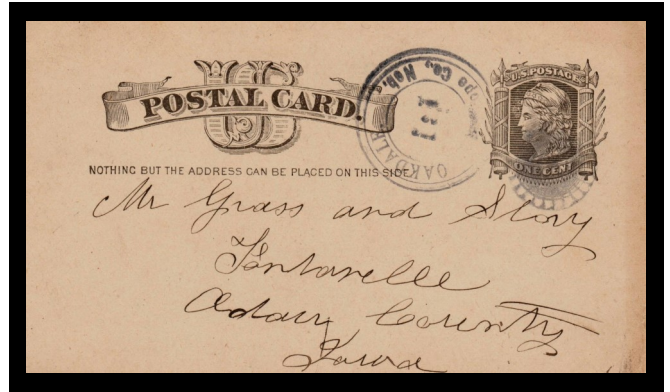 US
POSTAL CARD.
U.S. POSTAGE
ONE CENT
OAKDALE Co, Neb.
NOTHING BUT THE ADDRESS CAN BE PLACED ON THIS SIDE.
Mr Grass and Story
Fontanelle
Adair County
Iowa